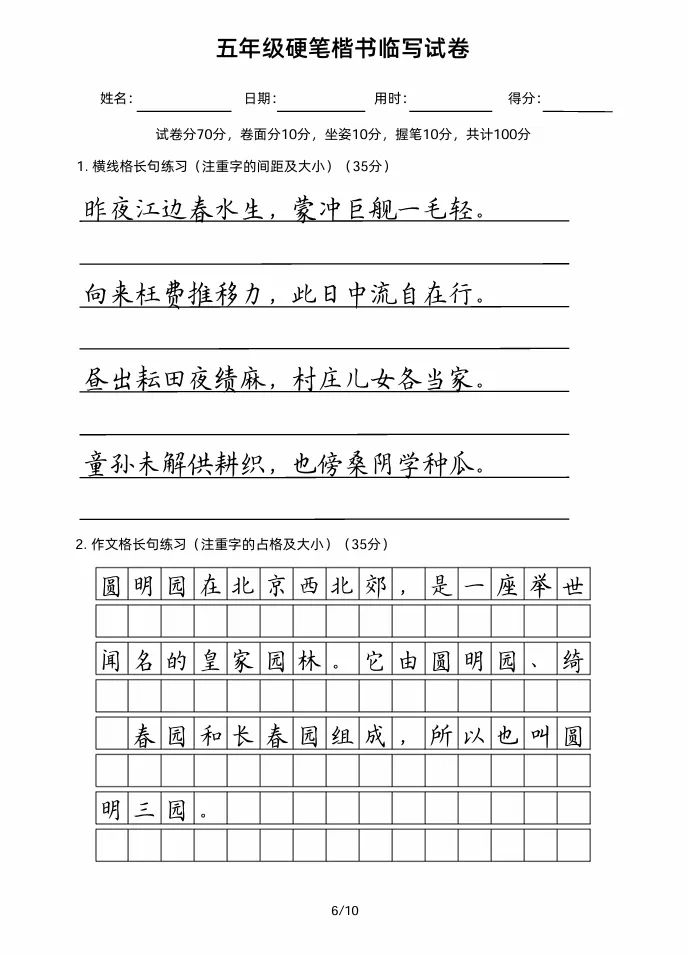 五年级硬笔楷书临写试卷
姓名： 日期： 用时： 得分：
试卷分70分，卷面分10分，坐姿10分，握笔10分，共计100分
1. 横线格长句练习（注重字的间距及大小）（35分）
昨夜江边春水生，蒙冲巨舰一毛轻。
向来枉费推移力，此日中流自在行。
昼出耘田夜绩麻，村庄儿女各当家。
童孙未解供耕织，也傍桑阴学种瓜。
2. 作文格长句练习（注重字的占格及大小）（35分）
圆明园在北京西北郊，是一座举世
闻名的皇家园林。它由圆明园、绮
春园和长春园组成，所以也叫圆
明三园。
6/10